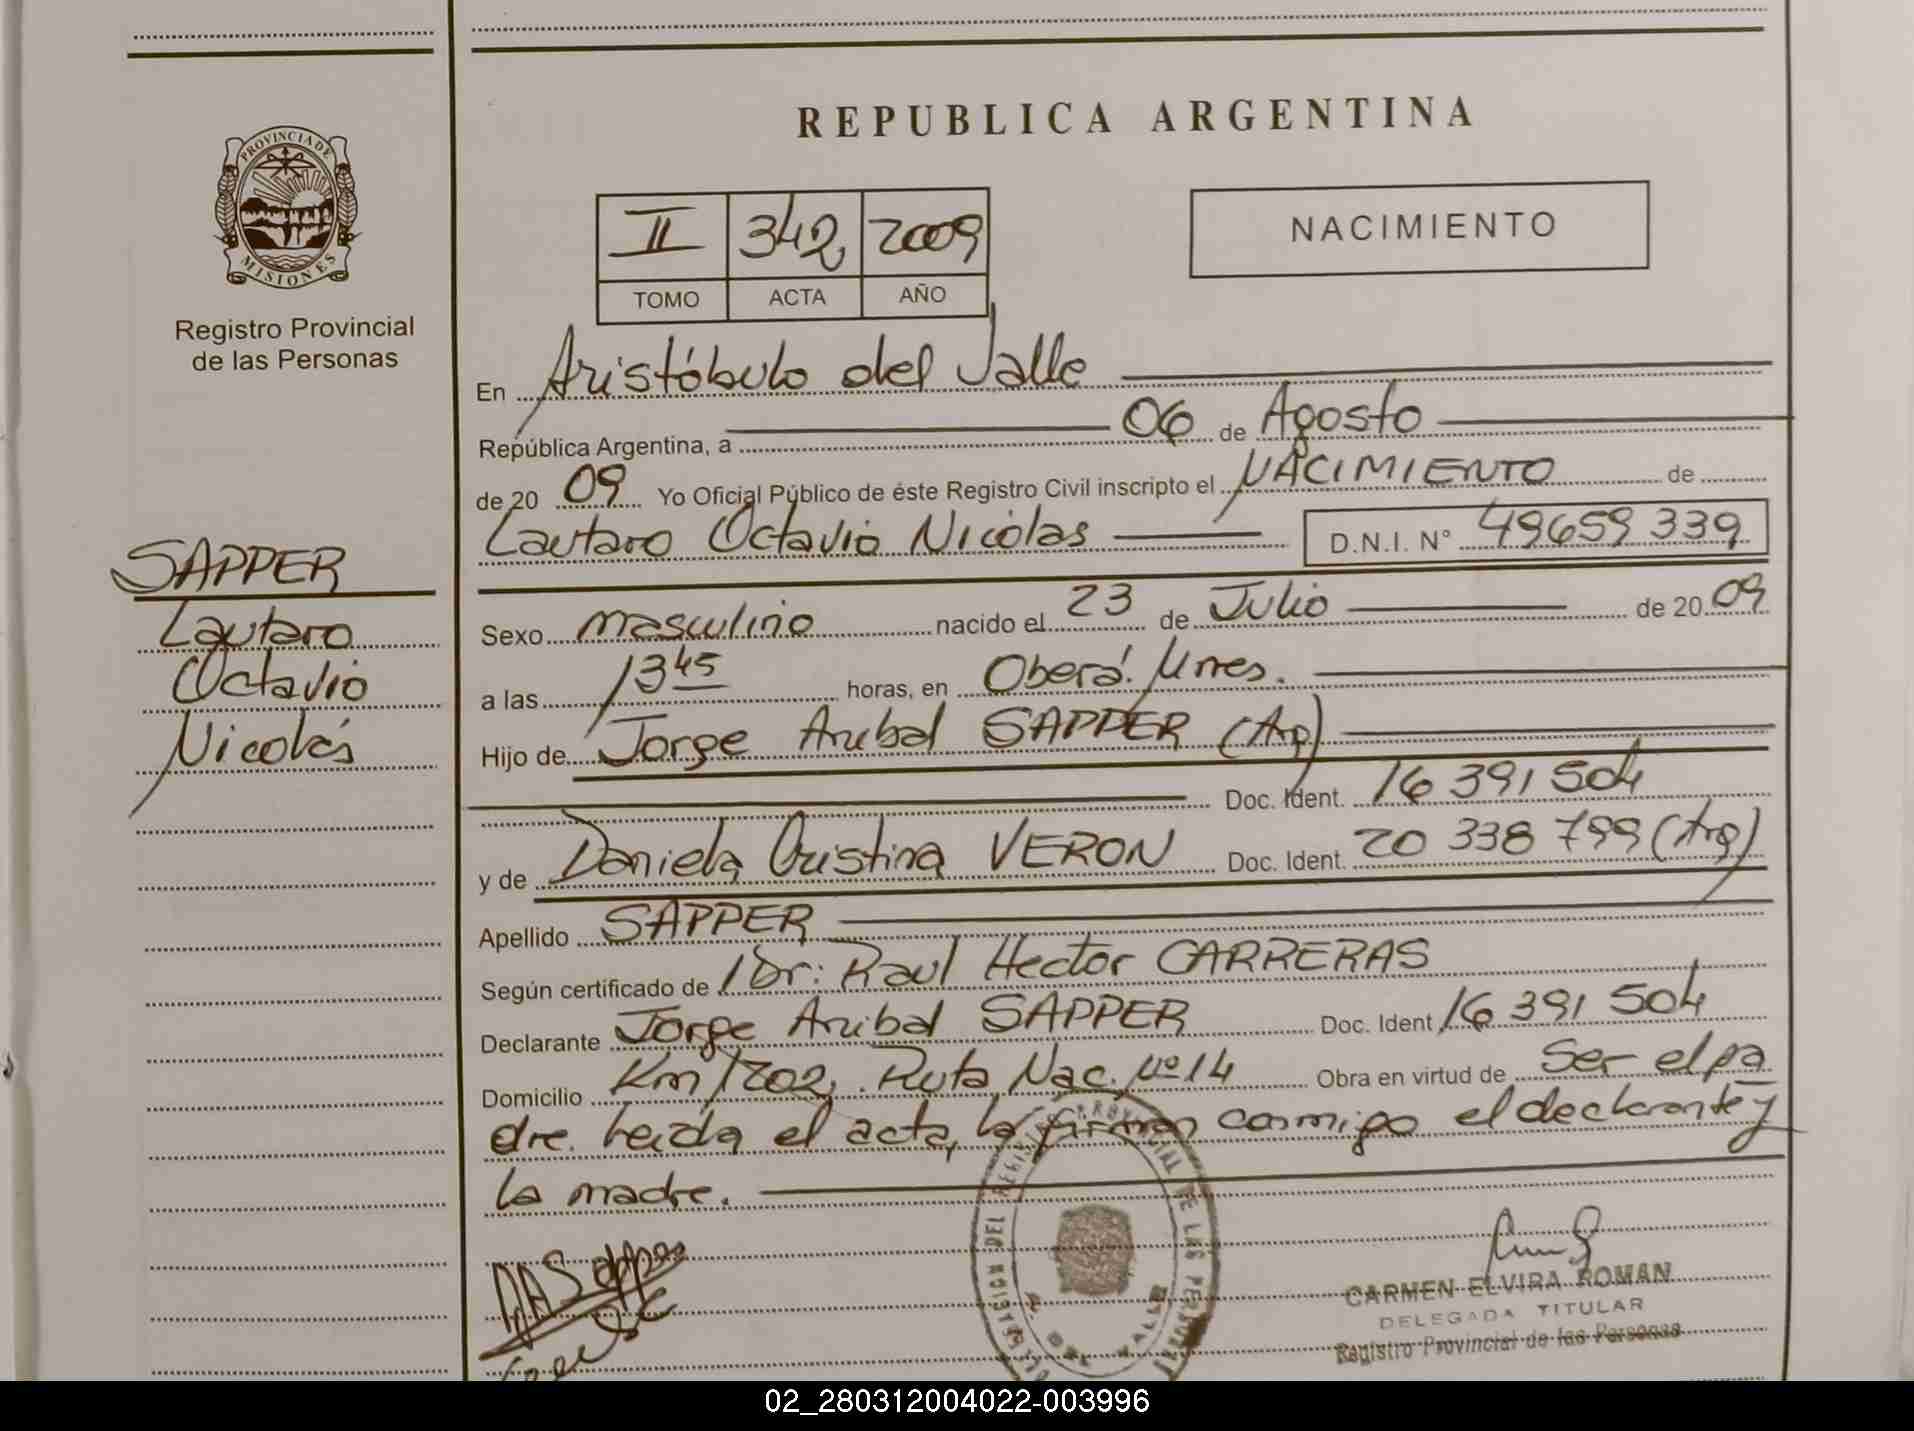 PROVINCIA DE
MISIONES
Registro Provincial
de las Personas
SAPPER
Lautaro
Octavio
Nicolás
REPUBLICA ARGENTINA
II 342 2009
TOMO ACTA AÑO
NACIMIENTO
En Aristóbulo del Valle
República Argentina, a 06 de Agosto
de 20 09 Yo Oficial Público de éste Registro Civil inscripto el NACIMIENTO de
Lautaro Octavio Nicolas D.N.I. N° 49659 339
Sexo masculino nacido el 23 de Julio de 20 09
a las 13 45 horas, en Oberá. Mnes.
Hijo de Jorge Anibal SAPPER (Arg)
Doc. Ident. 16 391 504
y de Daniela Cristina VERON Doc. Ident. 20 338 799 (Arg)
Apellido SAPPER
Según certificado de Dr: Raul Hector CARRERAS
Declarante Jorge Anibal SAPPER Doc. Ident 16 391 504
Domicilio Km 1202, Ruta Nac. Nº 14 Obra en virtud de Ser el pa
dre. Leída el acta, la firman conmigo el declarante y
la madre.
CARMEN ELVIRA ROMAN
DELEGADA TITULAR
Registro Provincial de las Personas
02_280312004022-003996